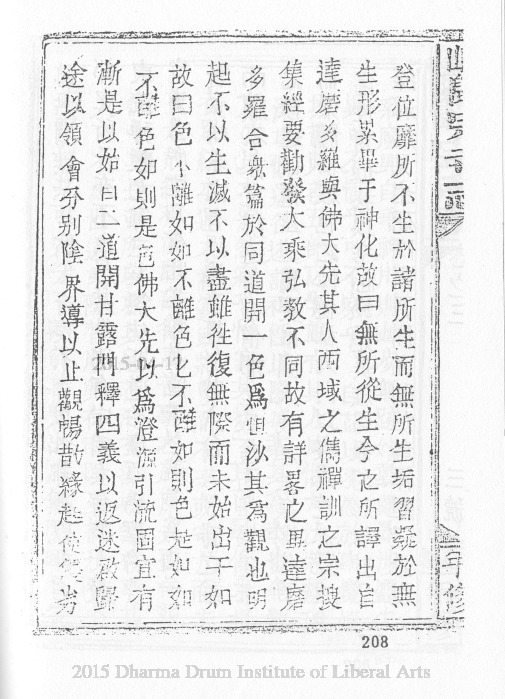 登位靡所不生於諸所生而無所生垢習凝於無
生形累畢于神化故曰無所從生今之所譯出自
達磨多羅與佛大先其人西域之儁禪訓之宗搜
集經要勸發大乘弘教不同故有詳畧之異達磨
多羅合衆篇於同道開一色爲恒沙其爲觀也明
起不以生滅不以盡雖徃復無際而未始出于如
故曰色不離如如不離色色不離如則色是如如
不離色如則是色佛大先以爲澄源引流固宜有
漸是以始自二道開甘露門釋四義以返迷啟歸
途以領會分別陰界導以止觀暢散緣起使優劣
208
2015-04-17
2015 Dharma Drum Institute of Liberal Arts